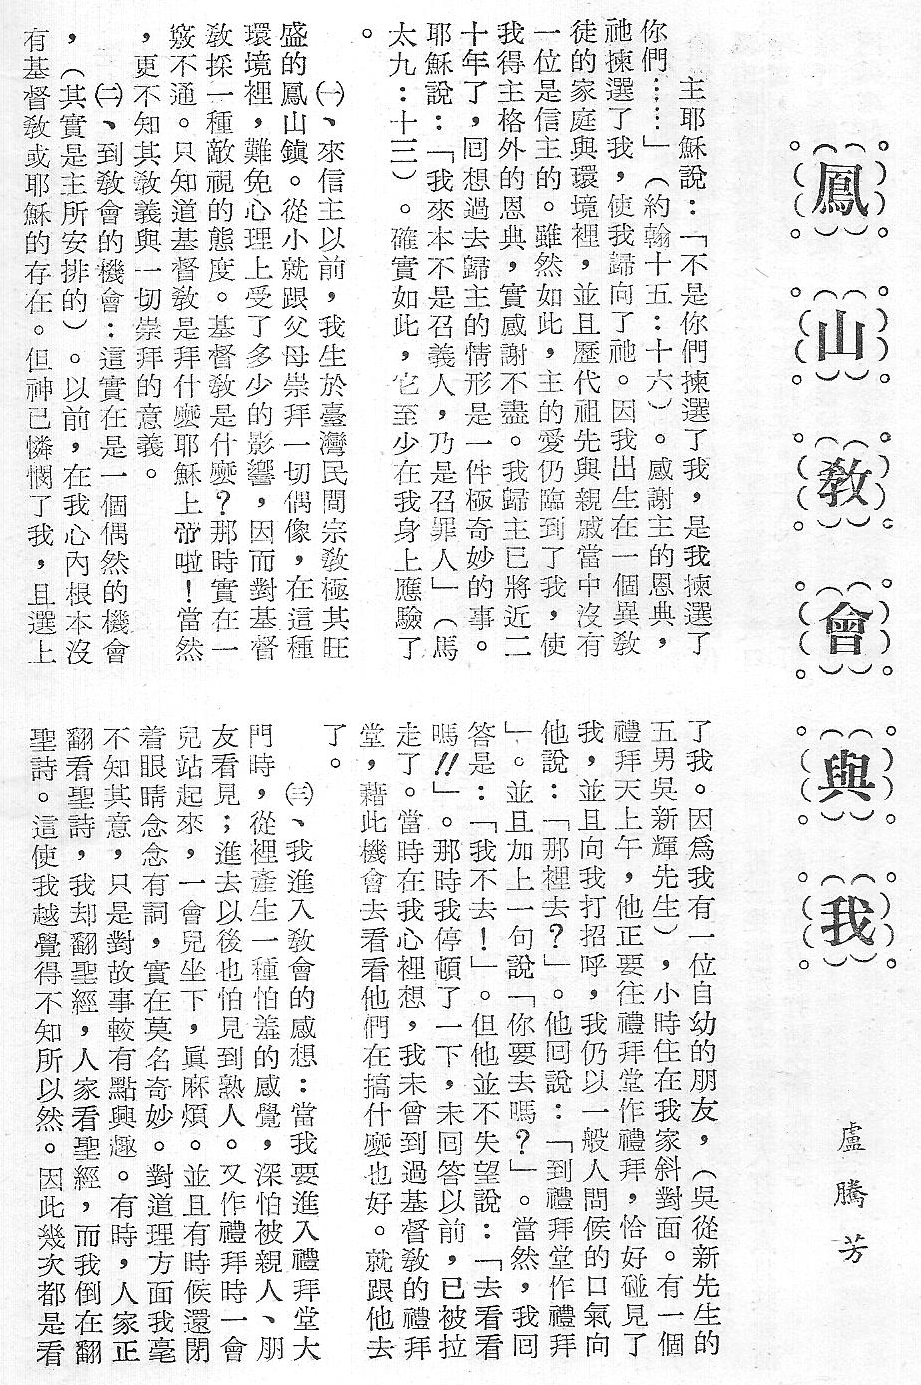 鳳山教會與我
盧騰芳
主耶穌說：「不是你們揀選了我，是我揀選了
你們……」（約翰十五：十六）。感謝主的恩典，
祂揀選了我，使我歸向了祂。因我出生在一個異教
徒的家庭與環境裡，並且歷代祖先與親戚當中沒有
一位是信主的。雖然如此，主的愛仍臨到了我，使
我得主格外的恩典，實感謝不盡。我歸主已將近二
十年了，回想過去歸主的情形是一件極奇妙的事。
耶穌說：「我來本不是召義人，乃是召罪人」（馬
太九：十三）。確實如此，它至少在我身上應驗了
。
㈠、來信主以前，我生於臺灣民間宗教極其旺
盛的鳳山鎮。從小就跟父母崇拜一切偶像，在這種
環境裡，難免心理上受了多少的影響，因而對基督
教採一種敵視的態度。基督教是什麼？那時實在一
竅不通。只知道基督教是拜什麼耶穌上帝啦！當然
，更不知其教義與一切崇拜的意義。
㈡、到教會的機會：這實在是一個偶然的機會
，（其實是主所安排的）。以前，在我心內根本沒
有基督教或耶穌的存在。但神已憐憫了我，且選上
了我。因爲我有一位自幼的朋友，（吳從新先生的
五男吳新輝先生），小時住在我家斜對面。有一個
禮拜天上午，他正要往禮拜堂作禮拜，恰好碰見了
我，並且向我打招呼，我仍以一般人問候的口氣向
他說：「那裡去？」。他回說：「到禮拜堂作禮拜
」。並且加上一句說「你要去嗎？」。當然，我回
答是：「我不去！」。但他並不失望說：「去看看
嗎!!」。那時我停頓了一下，未回答以前，已被拉
走了。當時在我心裡想，我未曾到過基督教的禮拜
堂，藉此機會去看看他們在搞什麼也好。就跟他去
了。
㈢、我進入教會的感想：當我要進入禮拜堂大
門時，從裡產生一種怕羞的感覺，深怕被親人、朋
友看見；進去以後也怕見到熟人。又作禮拜時一會
兒站起來，一會兒坐下，眞麻煩。並且有時候還閉
着眼睛念念有詞，實在莫名奇妙。對道理方面我毫
不知其意，只是對故事較有點興趣。有時，人家正
翻看聖詩，我却翻聖經，人家看聖經，而我倒在翻
聖詩。這使我越覺得不知所以然。因此幾次都是看